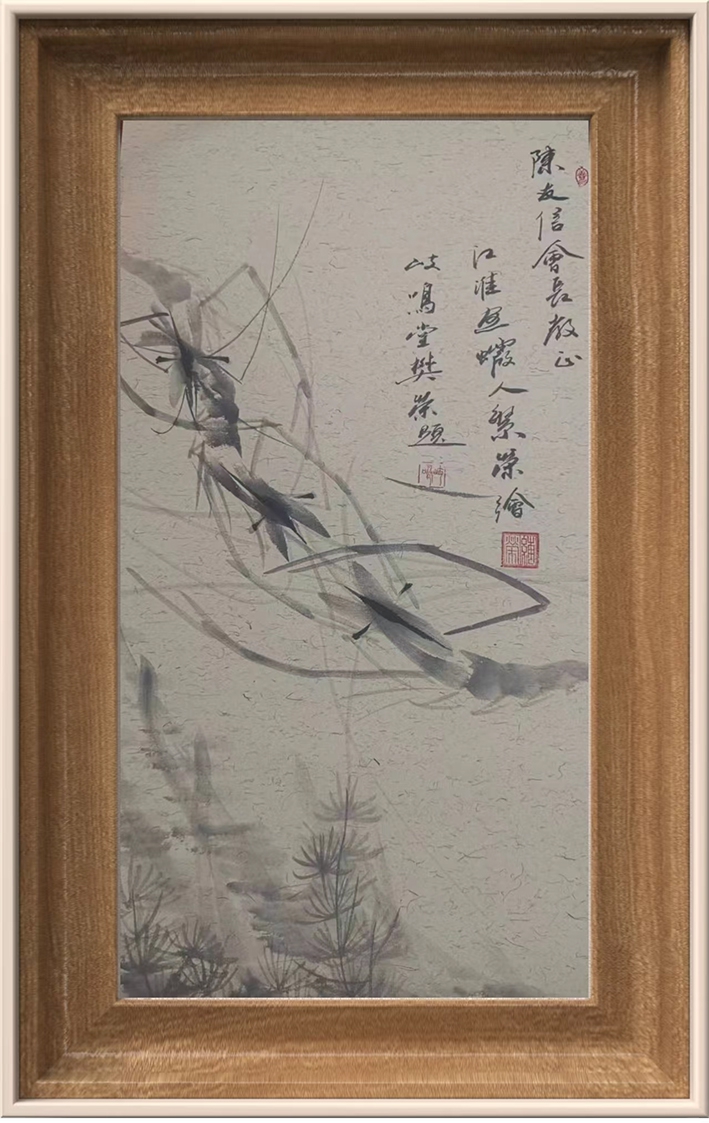 陳友信會長教正
江淮畫蝦人榮繪
岐鳴堂樊榮題